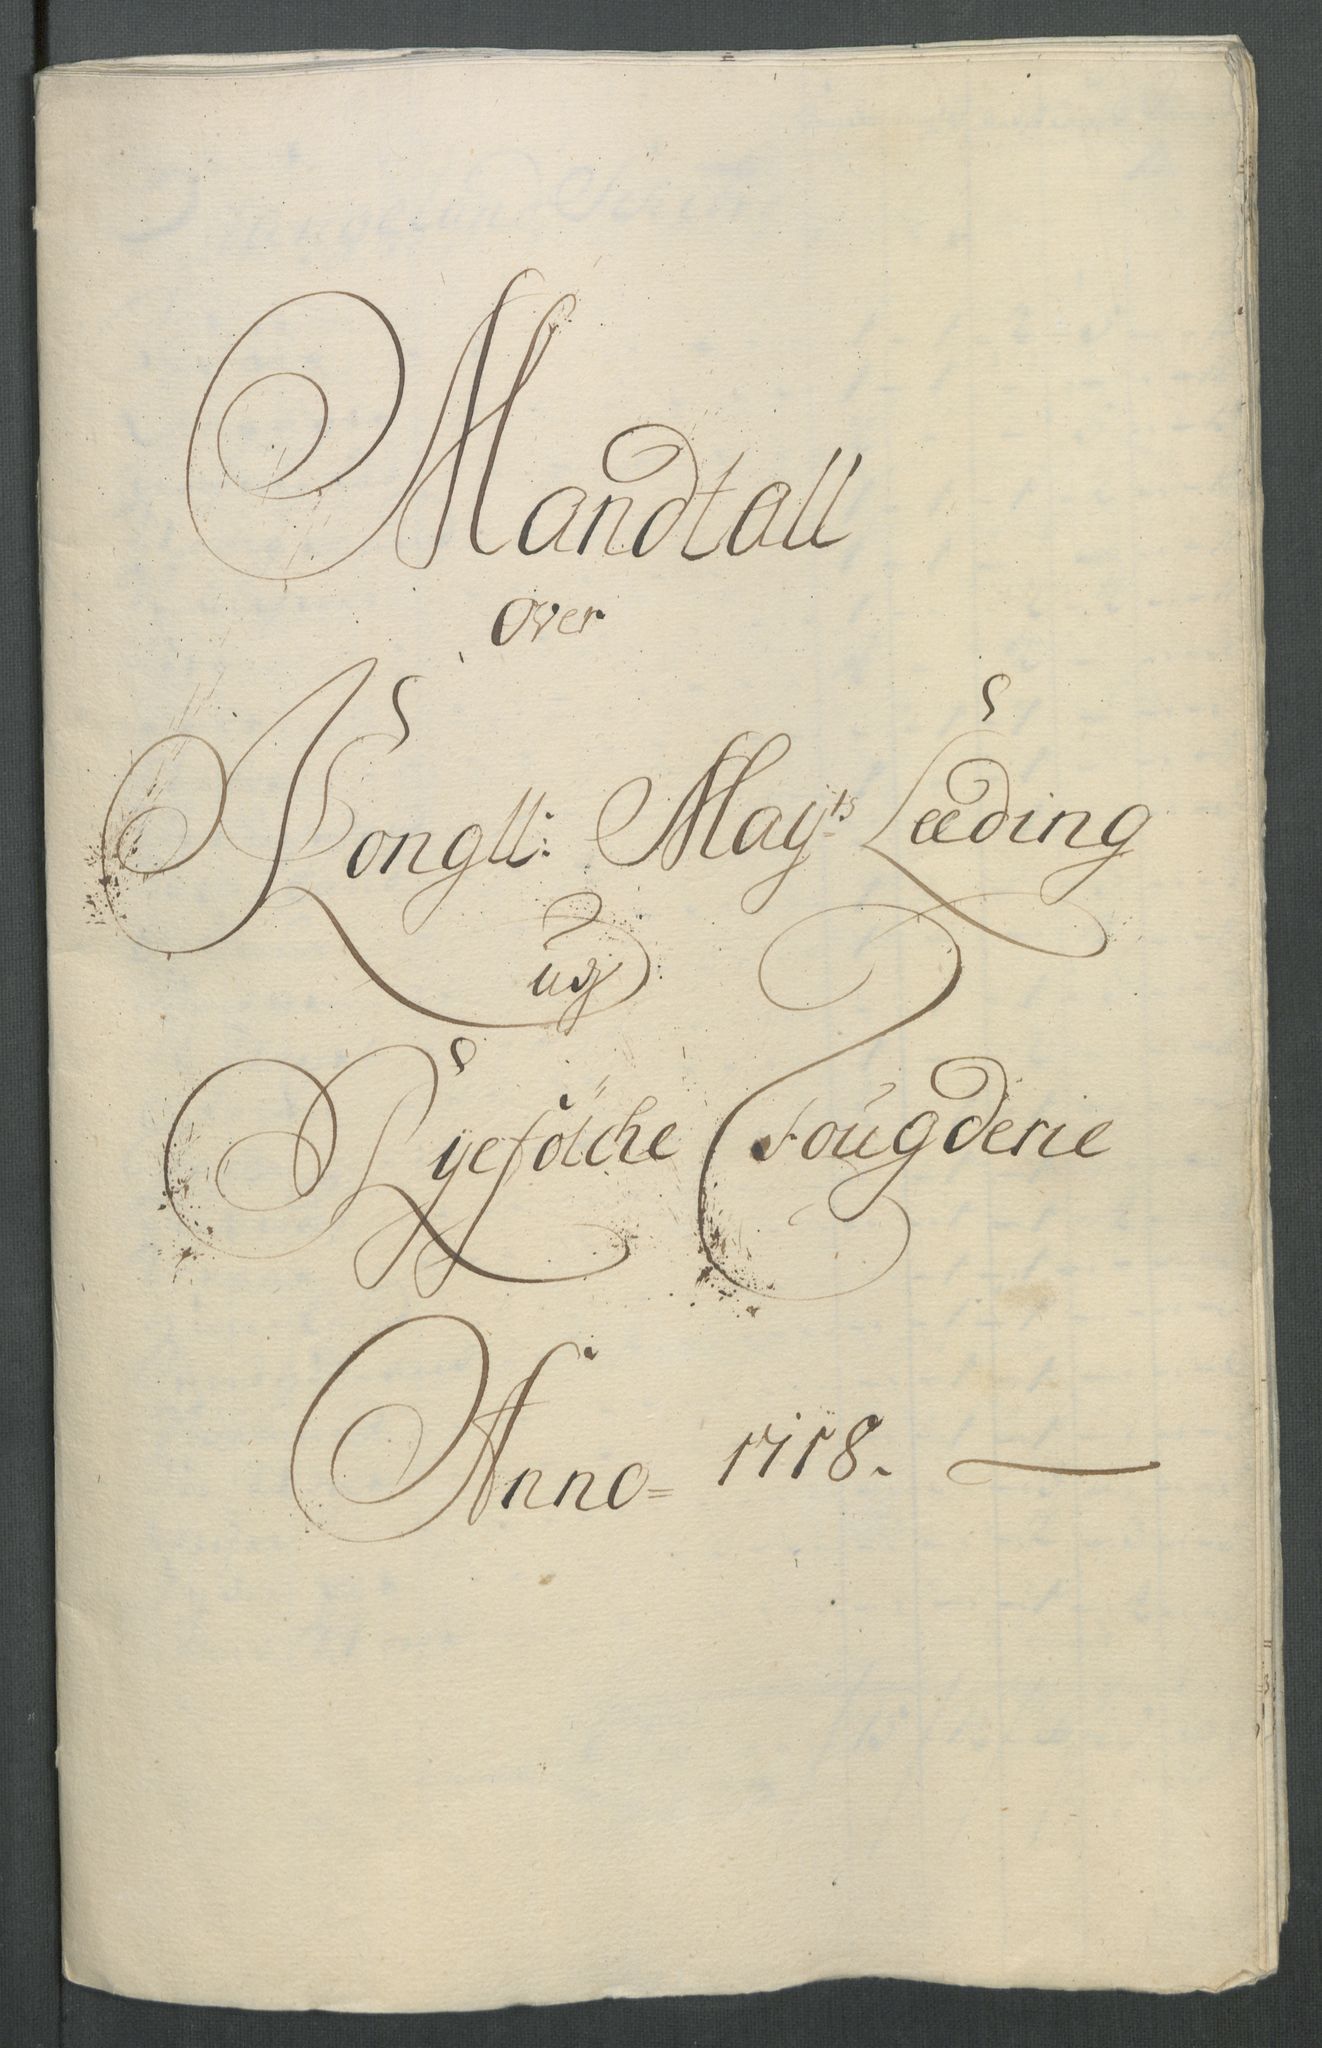 Mandtall
Over
Kongll: May:ts Leeding
udj
Ryefölcke Fougderie
Anno= 1718.